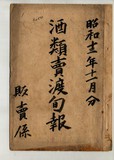 昭和十二年十一月分
酒類賣渡旬報
販賣係